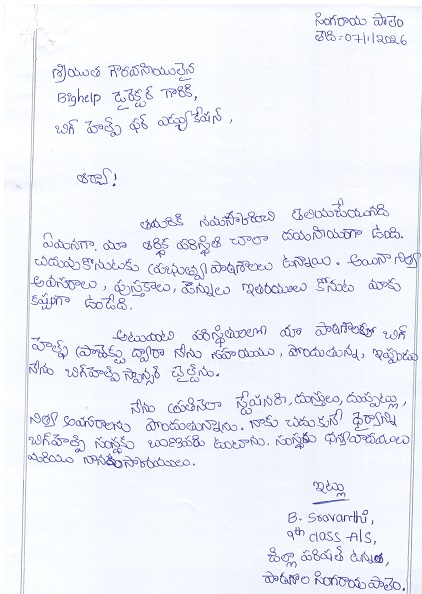 సింగరాయ పాలెం
తేది:-07/1/2026
శ్రీయుత గౌరవనీయులైన
Bighelp డైరెక్టర్ గారికి,
బిగ్ హెల్ప్ ఫర్ ఎడ్యుకేషన్,
ఆర్యా!
తమరికి నమస్కరించి తెలియజేయునది
ఏమనగా, మా ఆర్థిక పరిస్థితి చాలా దయనీయంగా ఉంది.
చదువుకొనుటకు ప్రభుత్వ పాఠశాలలు ఉన్నాయి. అయినా నిత్య
అవసరాలు, పుస్తకాలు, పెన్నులు ఇతరయులు కొనుట మాకు
కష్టంగా ఉండేది.
అటువంటి పరిస్థితులలో మా పాఠశాలకు బిగ్
హెల్ప్ ప్రాజెక్టు ద్వారా నేను సహాయము పొందుతున్న, ఇప్పుడు
నేను బిగ్‌హెల్ప్ స్పాన్సర్ చైల్డ్‌ను.
నేను ప్రతినెలా స్టేషనరీ, దుస్తులు, దుప్పట్లు,
నిత్య అవసరాలను పొందుతున్నాను. నాకు చదుకునే ధైర్యాన్ని
బిగ్‌హెల్ప్ సంస్థకు ఋణపడి ఉంటాను. సంస్థకు ధన్యవాదములు
మరియు నమస్కారములు.
ఇట్లు
B. Sravanthi,
9th class A/S,
జిల్లా పరిషత్ ఉన్నత,
పాఠశాల సింగరాయ పాలెం.